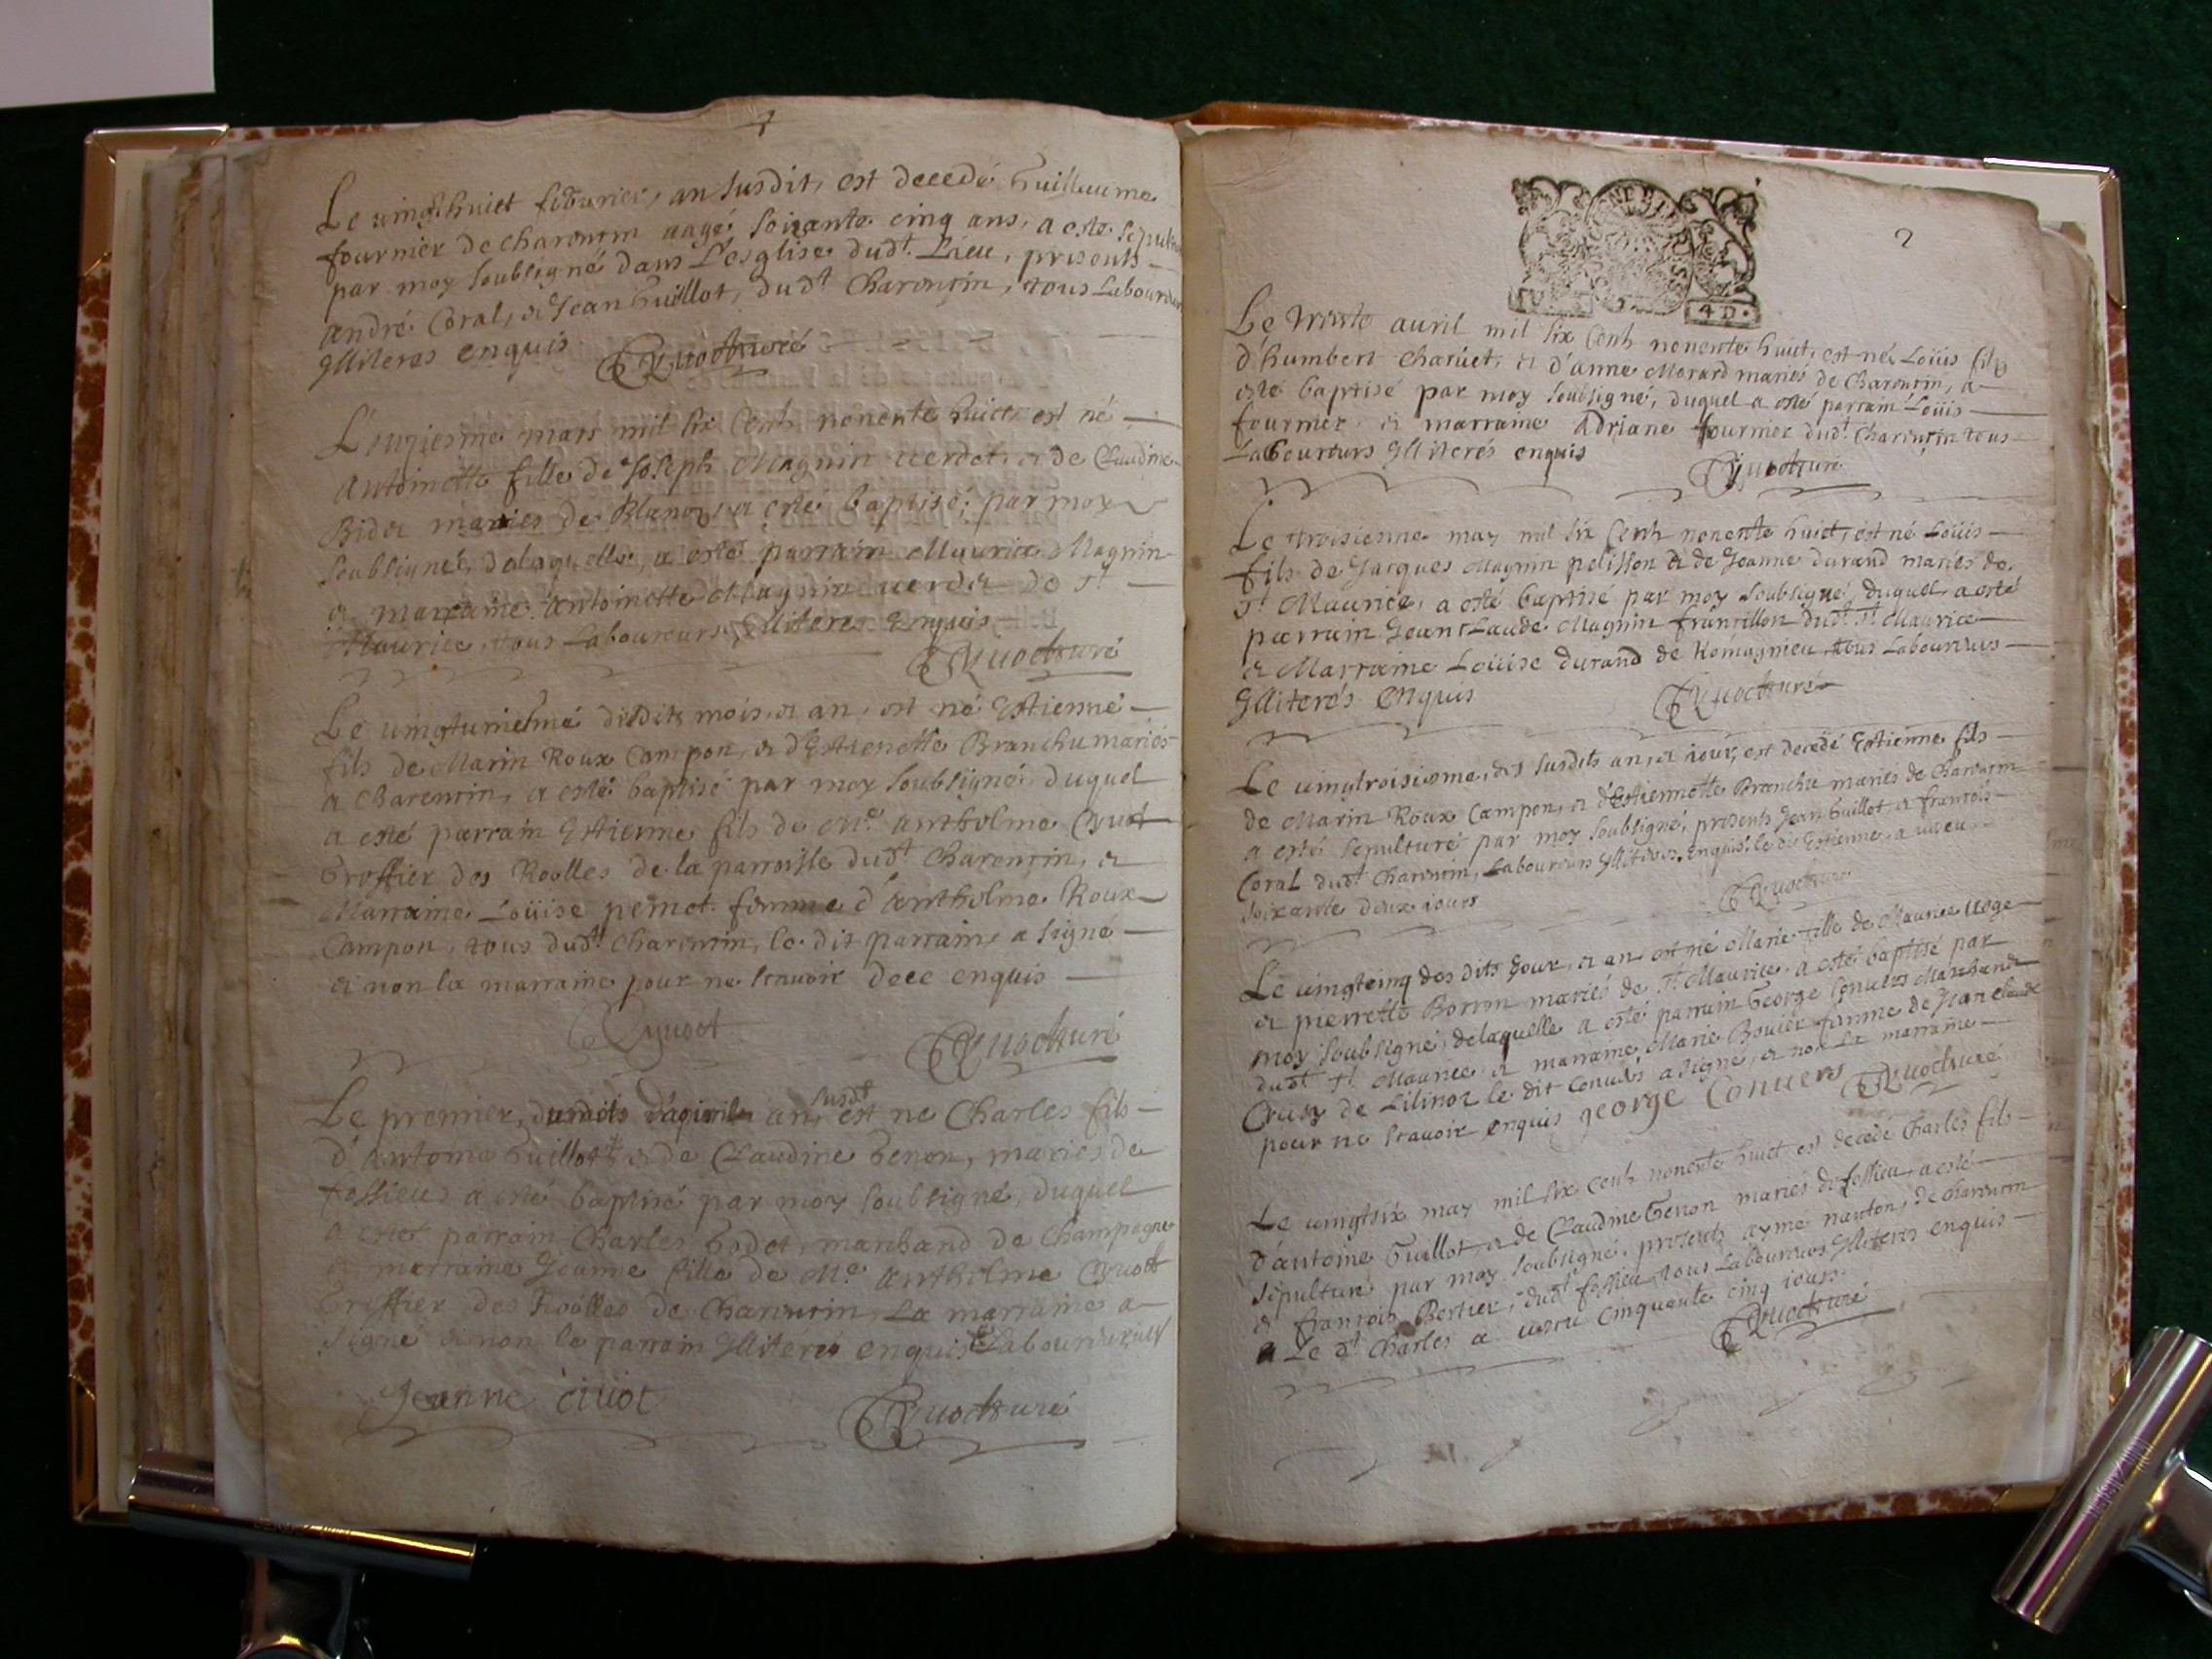 Le vingt huict febvrier, an susdit, est decedé Guillaume
fournier de charentin aagé soixante cinq ans, a este sepulturé
par moy soubsigné dans L'esglise dud.t Lieu, presents
André Coral, et Jean Guillot, dud.t Charentin, tous Laboureurs
Illiteres enquis Cyuot curé
L'onziesme mars mil six Cents nonente huict est né
Antoinette fille de Joseph Magnin verdet, et de Claudine
Bidet mariés de Blanoz, a esté baptisé, par moy
soubsigné, delaquelle, a esté parrain Maurice Magnin
et marraine Antoinette Magnin verdet de S.t
Maurice, tous Laboureurs, Illiteres Enquis
Cyuot curé
Le vingtuniesme desdits mois, et an, est né Estienne
fils de Marin Roux Campon, et d'Estienette Branchu mariés
a Charentin, a esté baptisé par moy soubsigné duquel
a esté parrain Estienne fils de M.e Antholme Cyuot
Greffier des Roolles de la parroisse dud.t Charentin, et
Marraine Loüise pernet femme d'Antholme Roux
Campon, tous dud.t Charentin, le dit parrain a signé
et non la marraine pour ne scavoir dece enquis
Cyuot Cyuot curé
Le premier, d'apvril an susd.t est ne Charles fils
d'Antoine Guillot et de Claudine Genon, maries de
fossieu, a esté baptisé par moy soubsigné, duquel
a esté parrain Charles Godet, marchand de Champagne
et marraine Jeanne fille de M.e Antholme Cyuot
Greffier des Roolles de Charentin, La marraine a
signé et non le parrain Illiteré enquis
Jeanne ciuot Cyuot curé
2
Le trente avril mil six Cents nonente huict, est né Loüis fils
d'humbert charüet, et d'anne Morard mariés de Charentin, a
esté baptisé par moy soubsigné, duquel a esté parrain Loüis
fournier et marraine Adriane fournier dud.t Charentin tous
Laboureurs Illiterés enquis Cyuot curé
Le troisiesme may mil six Cents nonente huict, est né Loüis
fils de Jacques Magnin pelisson et de Jeanne durand mariés de
S.t Maurice, a esté baptisé par moy soubsigné, duquel a esté
parrain Jean Claude Magnin frantillon dud.t S.t Maurice
et Marraine Loüise durand de Romagnieu, tous Laboureurs
Illiterés Enquis Cyuot curé
Le vingtroisiesme, des susdits an, et iour, est decedé Estienne fils
de Marin Roux Campon, et d'Estiennette Branchu mariés de Charentin
a esté sepulturé par moy soubsigné, presents Jean Guillot et francois
Coral dud.t Charentin, Laboureurs Illiteres, enquis, le dit Estienne a veseu
soixante deux iours Cyuot curé
Le vingtcinq des dits Jour, et an est né Marie fille de Maurice
et pierrette Borron mariés de S.t Maurice, a esté baptisé par
moy soubsigné, delaquelle a esté parrain George Convers Marchand
dud.t S.t Maurice et marraine Marie Bovier femme de Jean claude
Crusy de Lilinoz le dit Convers a signé, et non La marraine
pour ne scavoir enquis george Convers Cyuot curé
Le vingtsix may mil six cents nonente huict est decedé Charles fils
d'antoine Guillot, et de Claudine Genon mariés de fossieu, a esté
sepulturé par moy soubsigné, presents ayme nanton, de charentin
et francois Bertier, dud.t fossieu, tous Laboureurs Illiteres enquis
Le d.t Charles a vescu Cinquante cinq iours.
Cyuot curé